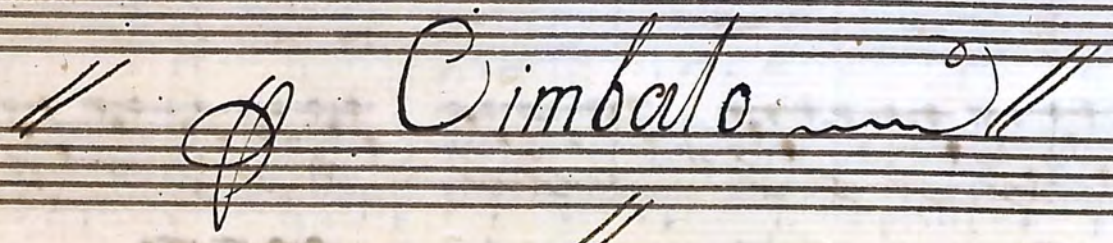 // p Cimbalo //
//